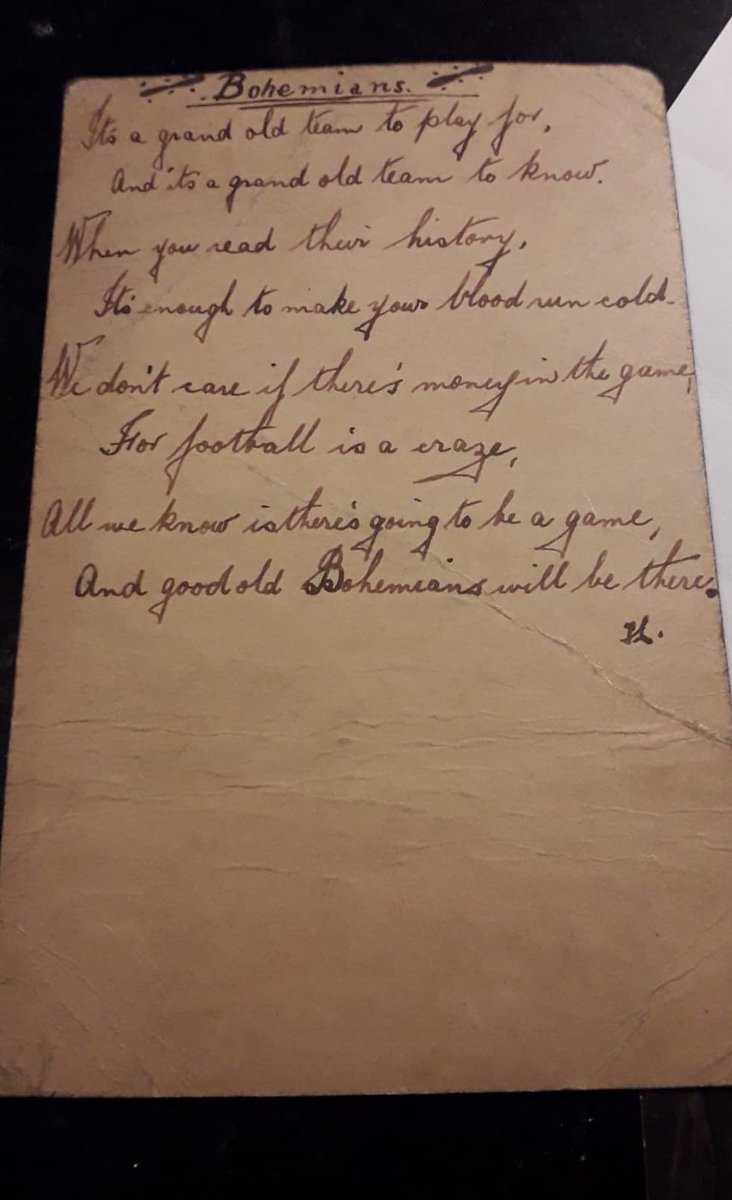 Bohemians.
Its a grand old team to play for,
And its a grand old team to know.
When you read their history,
Its enough to make your blood run cold.
We don't care if there's money in the game,
For football is a craze,
All we know is there's going to be a game,
And good old Bohemians will be there.